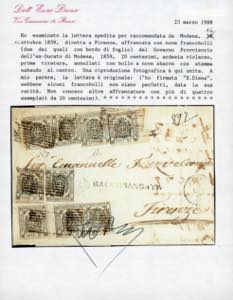 Dott. Enzo Diena
23 marzo 1988
Ho esaminato la lettera spedita per raccomandata da Modena,
ottobre 1859, diretta a Firenze, affrancata con nove francobolli
(due dei quali con bordo di foglio) del Governo Provvisorio
dell'ex-Ducato di Modena, 1859, 20 centesimi, ardesia violaceo,
prima tiratura, annullati con bollo a nove sbarre con stemma
sabaudo al centro. Una riproduzione fotografica è qui unita. A
mio parere, la lettera è originale: l'ho firmata "E.Diena",
sebbene alcuni francobolli non siano perfetti, data la sua
rarità. Non conosco altre affrancature con più di quattro
esemplari da 20 centesimi.
RACCOMANDATA
Firenze